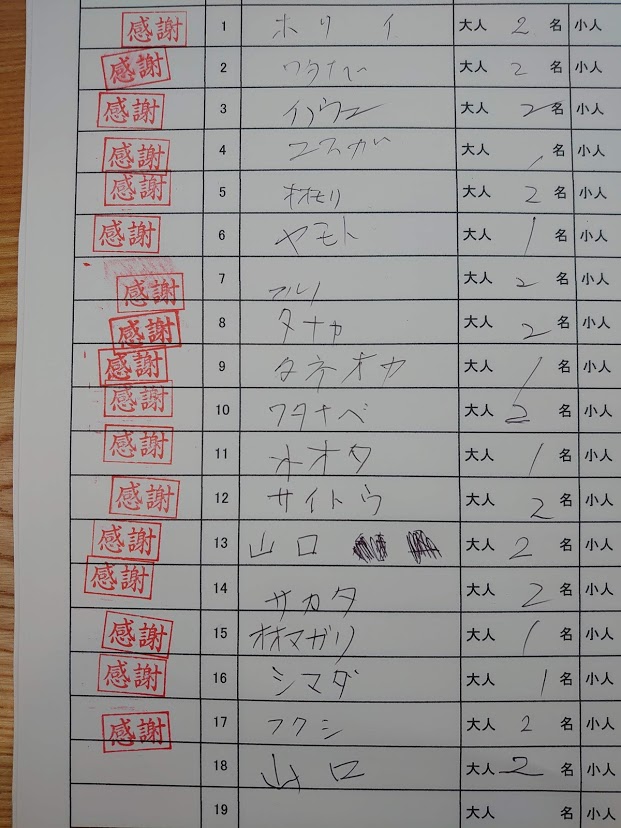 感謝 1 ホリイ 大人 2 名 小人
感謝 2 ワタナベ 大人 2 名 小人
感謝 3 イノウエ 大人 2 名 小人
感謝 4 コスガ 大人 1 名 小人
感謝 5 オオモリ 大人 2 名 小人
感謝 6 ヤモト 大人 1 名 小人
感謝 7 大人 2 名 小人
感謝 8 タナカ 大人 2 名 小人
感謝 9 タネオカ 大人 1 名 小人
感謝 10 ワタナベ 大人 2 名 小人
感謝 11 オオタ 大人 1 名 小人
感謝 12 サイトウ 大人 2 名 小人
感謝 13 山口 大人 2 名 小人
感謝 14 サカタ 大人 2 名 小人
感謝 15 オオマガリ 大人 1 名 小人
感謝 16 シマダ 大人 1 名 小人
感謝 17 フクシ 大人 2 名 小人
18 山口 大人 2 名 小人
19 大人 名 小人